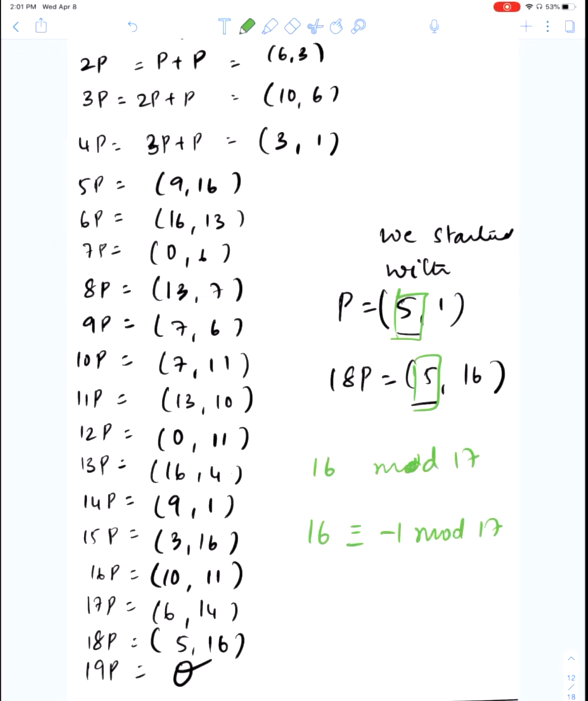 2:01 PM Wed Apr 8
53%
2P = P+P = (6,3)
3P = 2P+P = (10,6)
4P = 3P+P = (3,1)
5P = (9,16)
6P = (16,13)
7P = (0,6)
8P = (13,7)
9P = (7,6)
10P = (7,11)
11P = (13,10)
12P = (0,11)
13P = (16,4)
14P = (9,1)
15P = (3,16)
16P = (10,11)
17P = (6,14)
18P = (5,16)
19P = O
we started
with
P = (5,1)
18P = (5,16)
16 mod 17
16 ≡ -1 mod 17
12
/
18